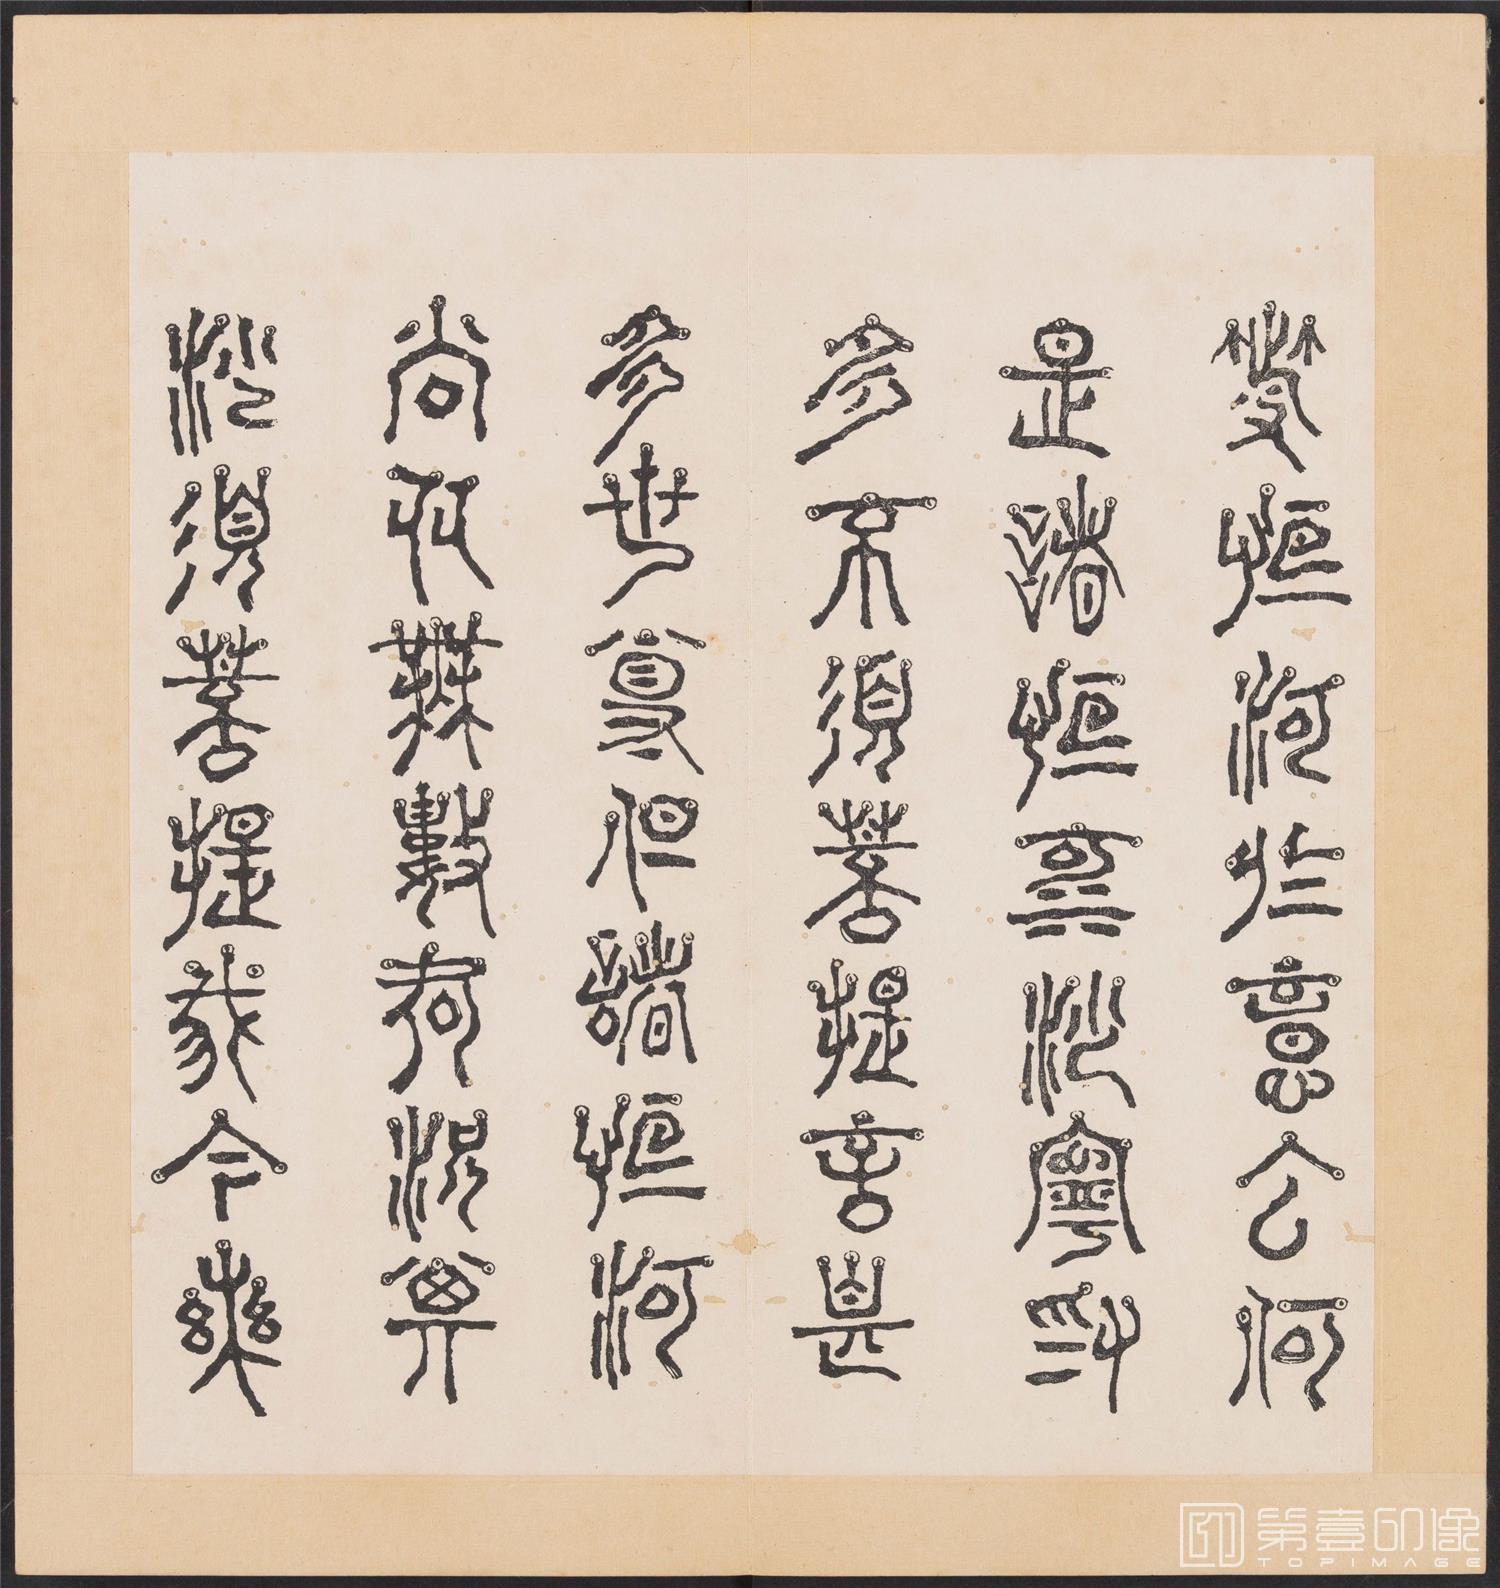 等恒河於意云何
是諸恒河沙寧為
多不須菩提言甚
多世尊但諸恒河
尚多無數何況其
沙須菩提我今實
第壹印像
TOPIMAGE